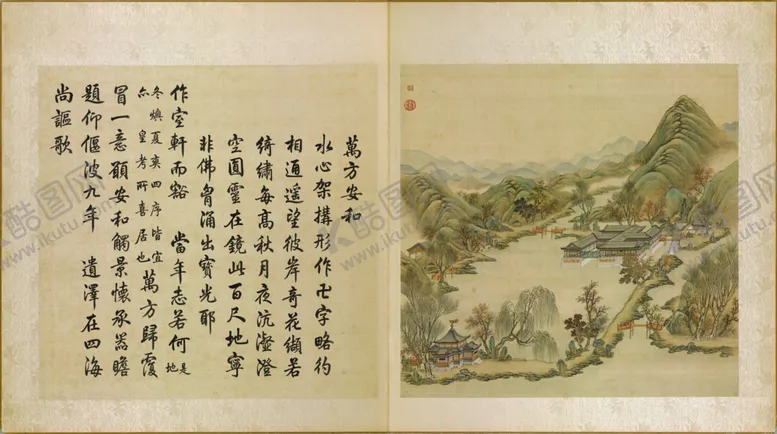 萬方安和
水心架搆形作卍字略彴
相通遥望彼岸奇花纈若
綺繡每高秋月夜沆瀣澄
空圓靈在鏡此百尺地寧
非佛胷涌出寳光耶
作室軒而豁 當年志若何 是地
冬燠夏爽四序皆宜
亦 皇考所喜居也 萬方歸覆
冒一意願安和觸景懷承器瞻
題仰偃波九年 遺澤在四海
尚謳歌
酷图网
www.ikutu.com